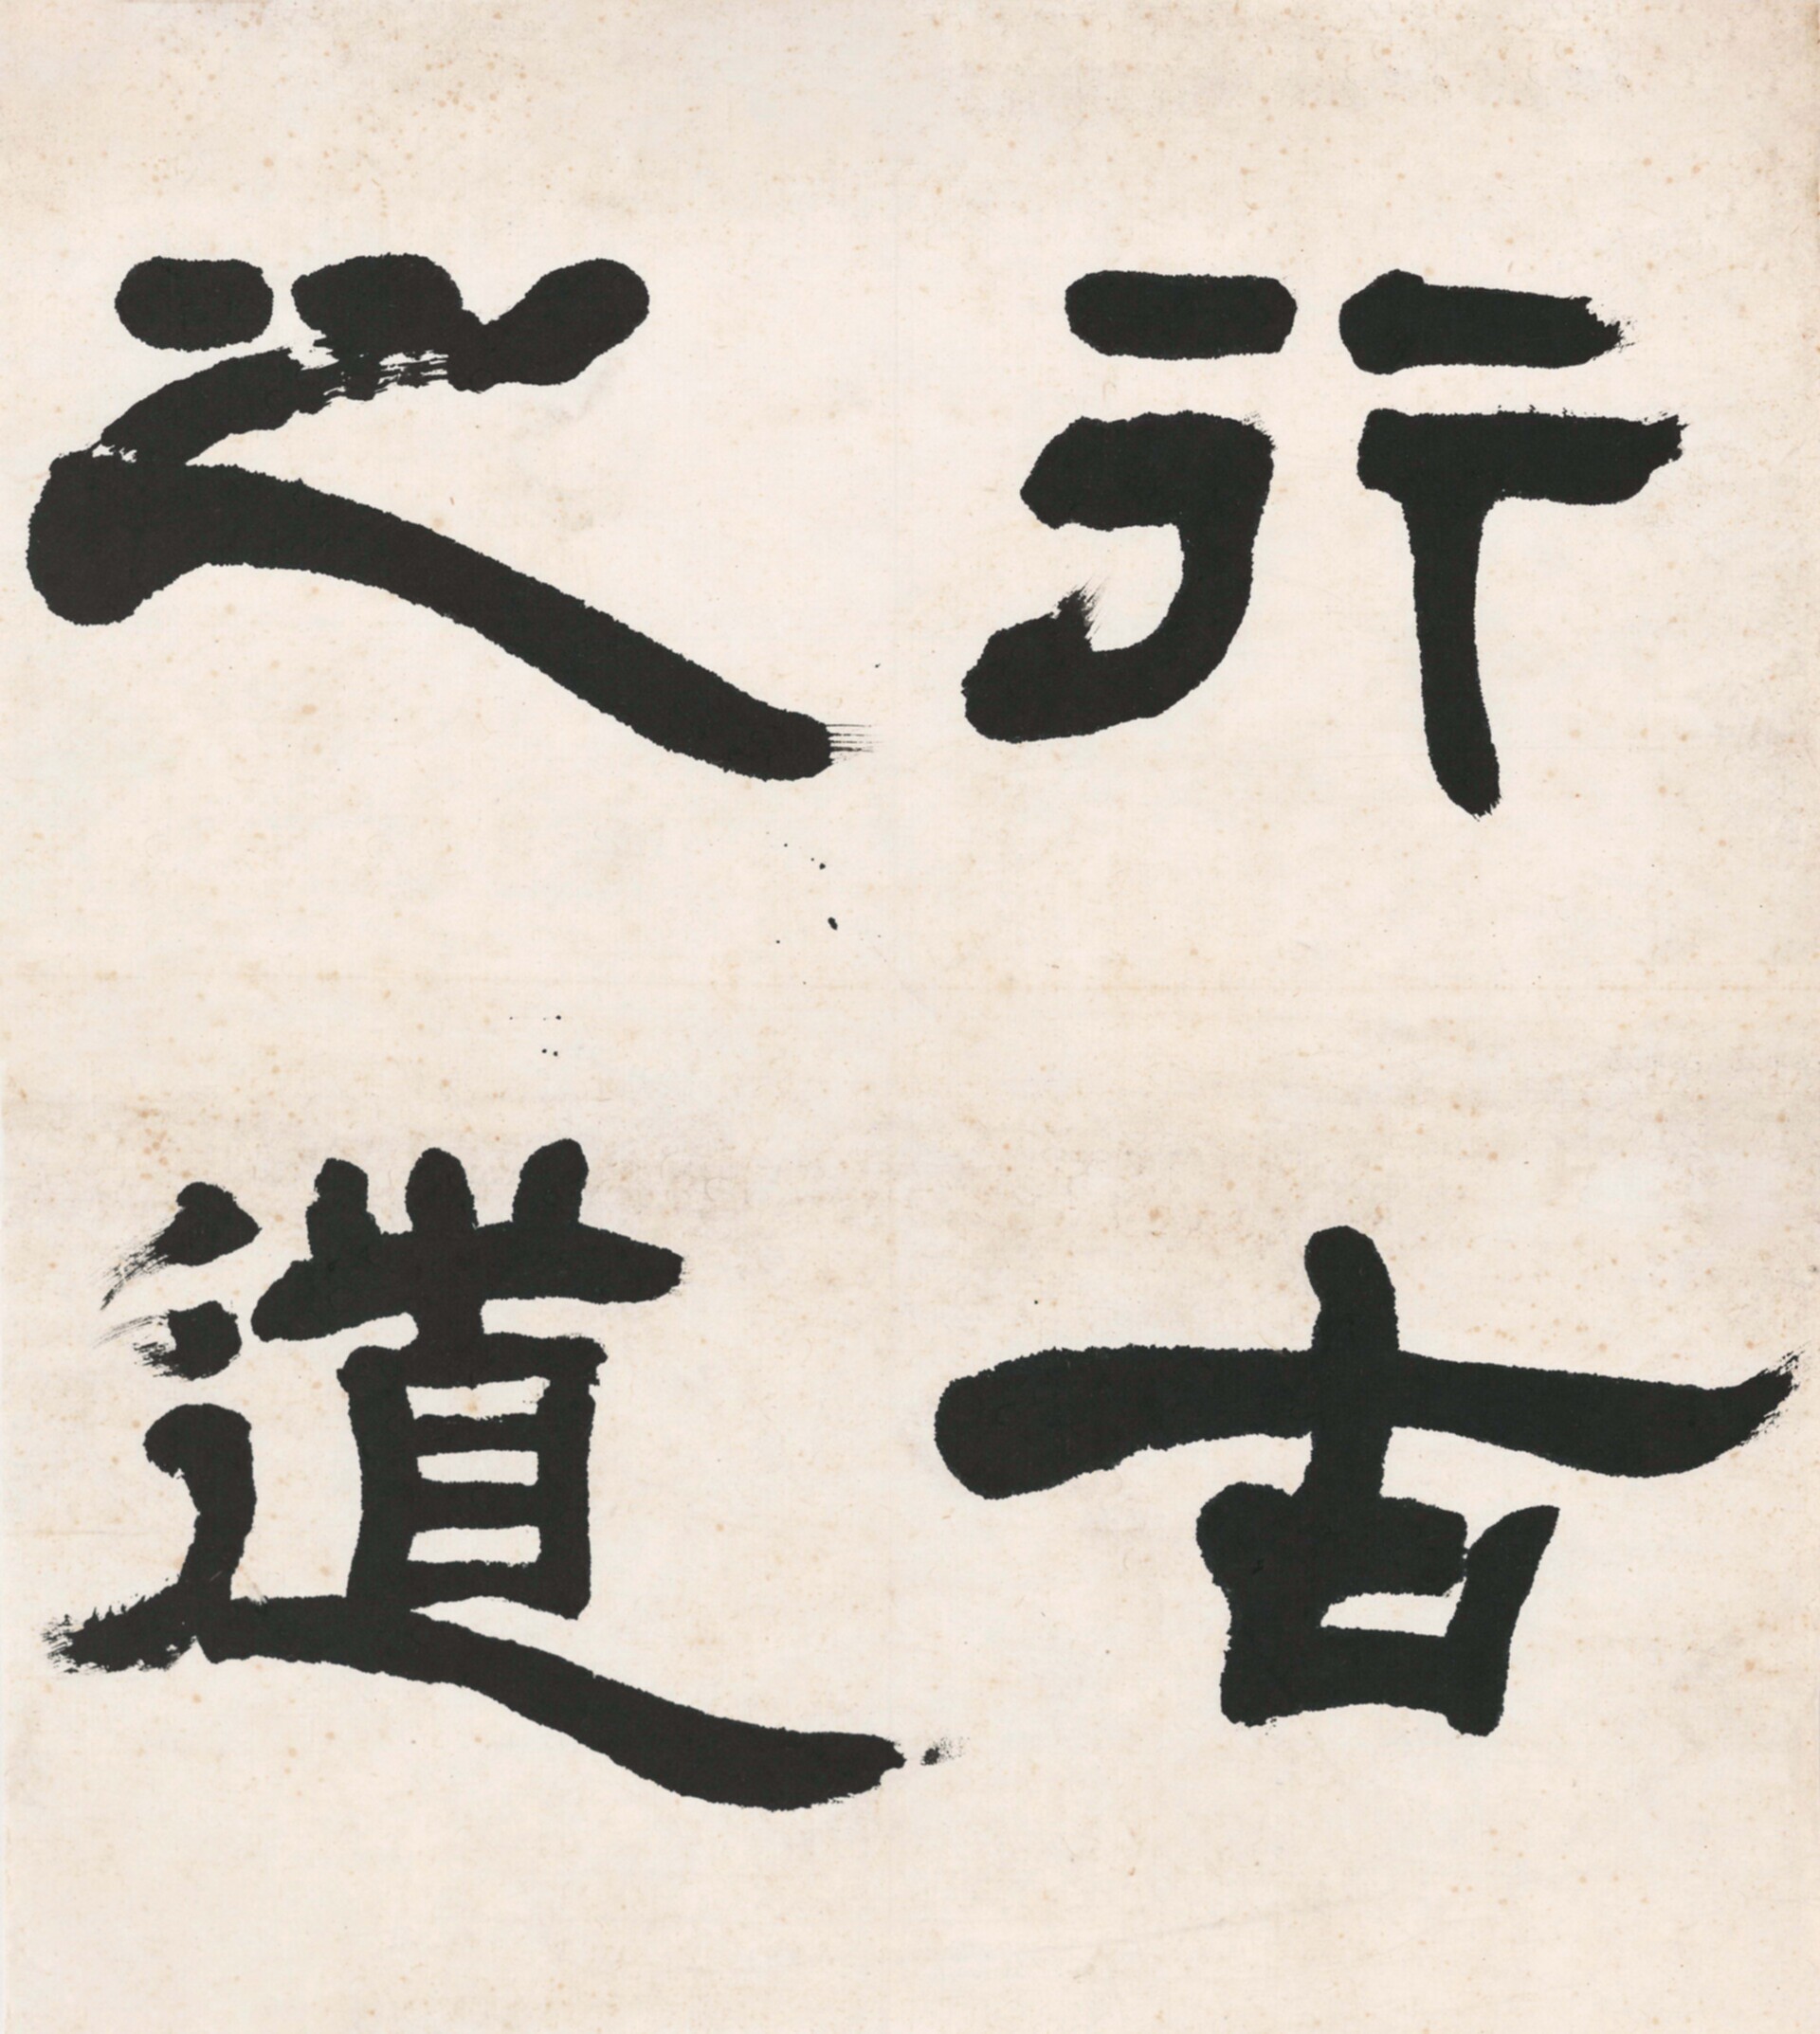 行古
之道